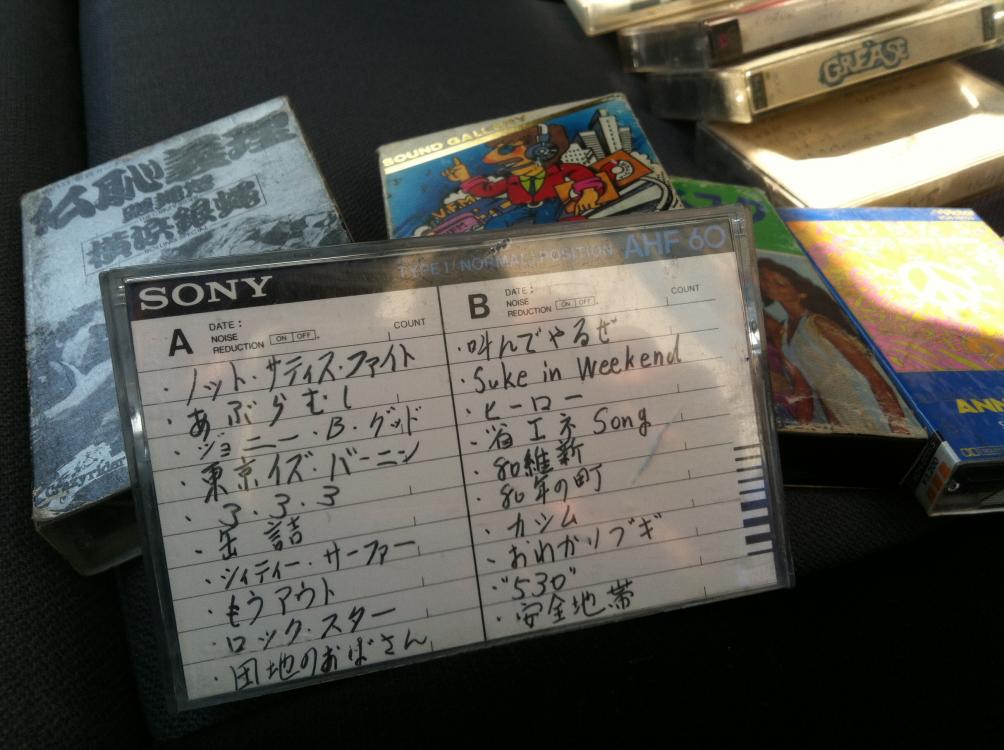 GREASE
SOUND GALLERY
仏恥義理
横浜銀蝿
Crazyrider
SONY
TYPE I (NORMAL) POSITION AHF 60
A DATE:
NOISE
REDUCTION ON OFF
COUNT
・ノット・サティスファイト
・あぶらむし
・ジョニー・B・グッド
・東京イズ・バーニン
・3・3・3
・缶詰
・シィティー・サーファー
・もうアウト
・ロック・スター
・団地のおばさん
B DATE:
NOISE
REDUCTION ON OFF
COUNT
・叫んでやるぜ
・Suke in Weekend
・ヒーロー
・省エネ Song
・80維新
・80年の町
・カシム
・おわかりブギ
・"530"
・安全地帯